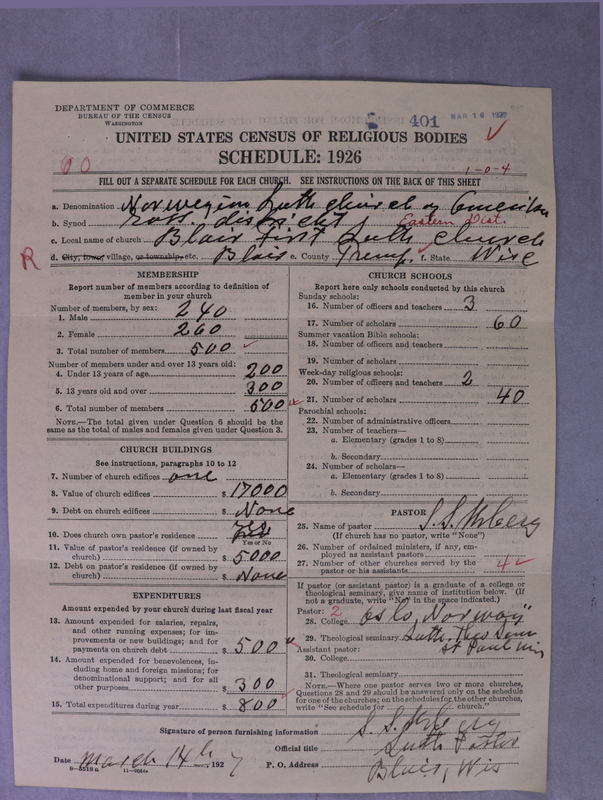 DEPARTMENT OF COMMERCE
BUREAU OF THE CENSUS
WASHINGTON
401
MAR 16 1927
UNITED STATES CENSUS OF RELIGIOUS BODIES
SCHEDULE: 1926
1-0-4
FILL OUT A SEPARATE SCHEDULE FOR EACH CHURCH. SEE INSTRUCTIONS ON THE BACK OF THIS SHEET
a. Denomination Norwegian Luth church of America
b. Synod district Eastern Dist.
c. Local name of church Blair First Luth church
d. City, town, village, or township, etc. Blair e. County Tremp. f. State Wisc
R
MEMBERSHIP
Report number of members according to definition of
member in your church
Number of members, by sex:
1. Male 240
2. Female 260
3. Total number of members 500
Number of members under and over 13 years old:
4. Under 13 years of age 200
5. 13 years old and over 300
6. Total number of members 500
NOTE.—The total given under Question 6 should be the
same as the total of males and females given under Question 3.
CHURCH BUILDINGS
See instructions, paragraphs 10 to 12
7. Number of church edifices one
8. Value of church edifices $ 17000
9. Debt on church edifices $ None
10. Does church own pastor's residence Yes
Yes or No
11. Value of pastor's residence (if owned by
church) $ 5000
12. Debt on pastor's residence (if owned by
church) $ None
EXPENDITURES
Amount expended by your church during last fiscal year
13. Amount expended for salaries, repairs,
and other running expenses; for im-
provements or new buildings; and for
payments on church debt $ 500
14. Amount expended for benevolences, in-
cluding home and foreign missions; for
denominational support; and for all
other purposes $ 300
15. Total expenditures during year $ 800
CHURCH SCHOOLS
Report here only schools conducted by this church
Sunday schools:
16. Number of officers and teachers 3
17. Number of scholars 60
Summer vacation Bible schools:
18. Number of officers and teachers
19. Number of scholars
Week-day religious schools:
20. Number of officers and teachers 2
21. Number of scholars 40
Parochial schools:
22. Number of administrative officers
23. Number of teachers—
a. Elementary (grades 1 to 8)
b. Secondary
24. Number of scholars—
a. Elementary (grades 1 to 8)
b. Secondary
PASTOR
25. Name of pastor S. S.
(If church has no pastor, write "None")
26. Number of ordained ministers, if any, em-
ployed as assistant pastors
27. Number of other churches served by the
pastor or his assistants 4
If pastor (or assistant pastor) is a graduate of a college or
theological seminary, give name of institution below. (If
not a graduate, write "No" in the space indicated.)
Pastor: 2
28. College Oslo, Norway
29. Theological seminary Luth. Theo Sem
Assistant pastor: St Paul Min
30. College
31. Theological seminary
NOTE.—Where one pastor serves two or more churches,
Questions 28 and 29 should be answered only on the schedule
for one of the churches; on the schedules for the other churches,
write "See schedule for church."
Signature of person furnishing information S. S.
Official title Luth Pastor
Date March 14th, 1927 P. O. Address Blair, Wis